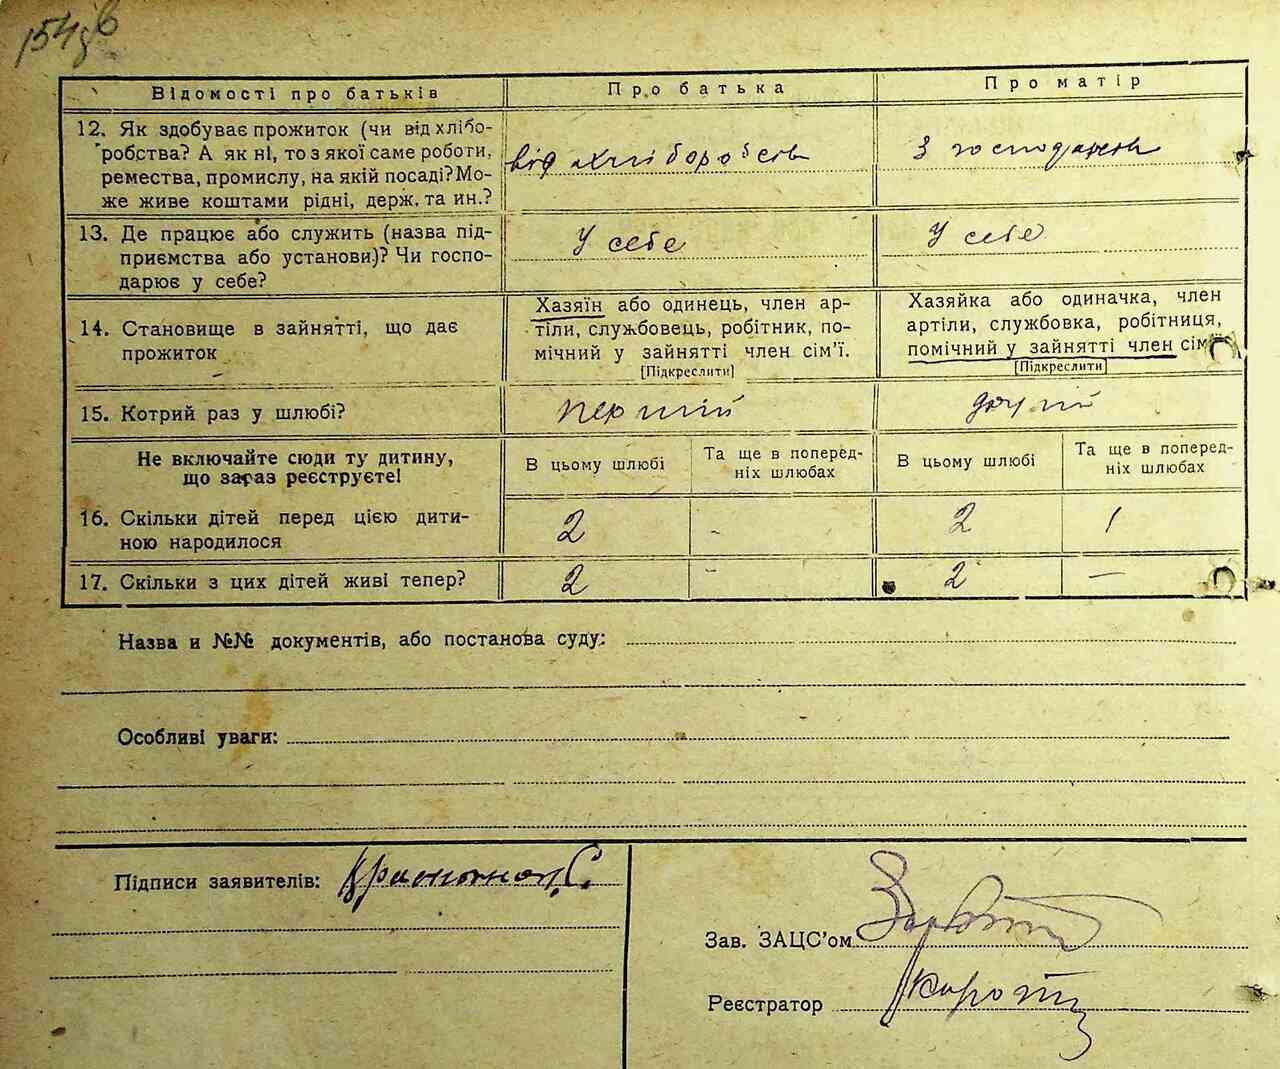 154зв
Відомості про батьків
Про батька
Про матір
12. Як здобуває прожиток (чи від хлібо-
робства? А як ні, то з якої саме роботи,
ремества, промислу, на якій посаді? Мо-
же живе коштами рідні, держ. та ин.?
від хліборобств
З господарств
13. Де працює або служить (назва під-
приємства або установи)? Чи госпо-
дарює у себе?
У себе
У себе
14. Становище в зайнятті, що дає
прожиток
Хазяїн або одинець, член ар-
тіли, службовець, робітник, по-
мічний у зайнятті член сім'ї.
[Підкреслити]
Хазяйка або одиначка, член
артіли, службовка, робітниця,
помічний у зайнятті член сім'ї
[Підкреслити]
15. Котрий раз у шлюбі?
перший
другий
Не включайте сюди ту дитину,
що зараз реєструєте!
В цьому шлюбі
Та ще в поперед-
ніх шлюбах
В цьому шлюбі
Та ще в поперед-
ніх шлюбах
16. Скільки дітей перед цією дити-
ною народилося
2
-
2
1
17. Скільки з цих дітей живі тепер?
2
-
2
—
Назва и №№ документів, або постанова суду:
Особливі уваги:
Підписи заявителів:
Зав. ЗАЦС'ом
Реєстратор